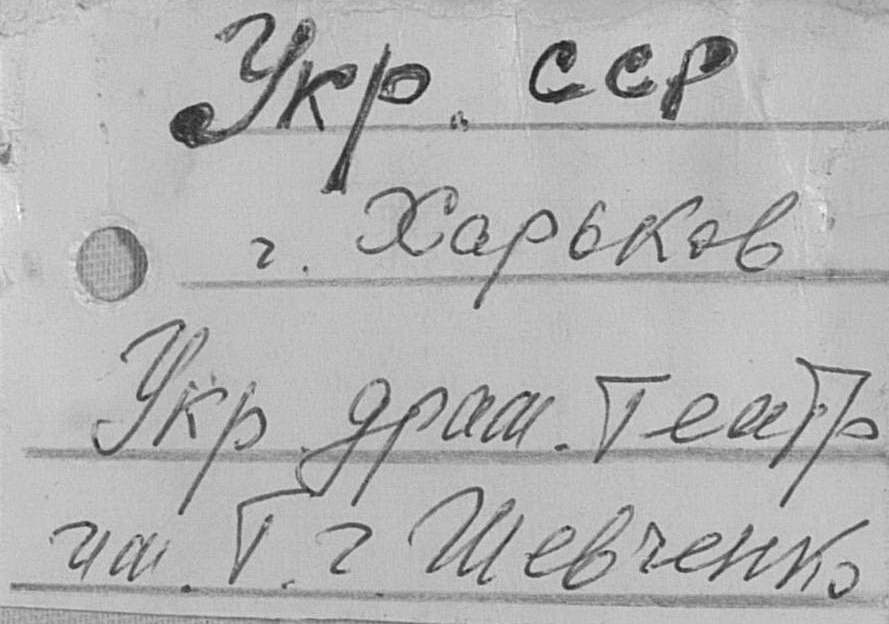 Укр. ССР
г. Харьков
Укр. драм. Театр
им. Т. г Шевченко